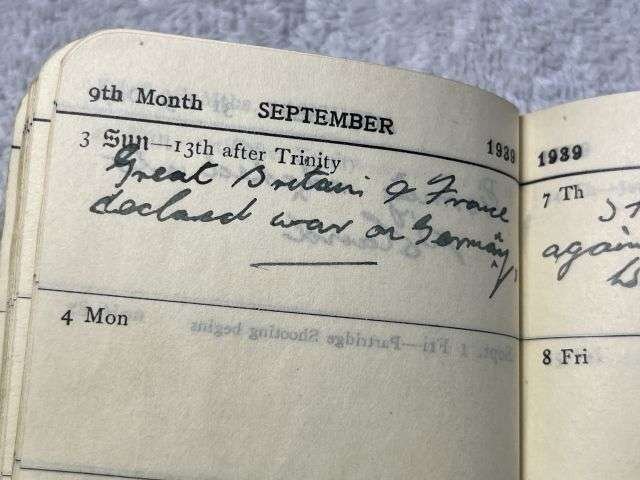 9th Month SEPTEMBER 1939
3 Sun—13th after Trinity
Great Britain & France
declared war on Germany
4 Mon
Sept. 1 Fri—Partridge Shooting begins
1939
7 Th
again
8 Fri